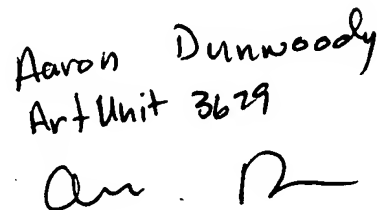 Aaron Dunwoody
Art Unit 3629